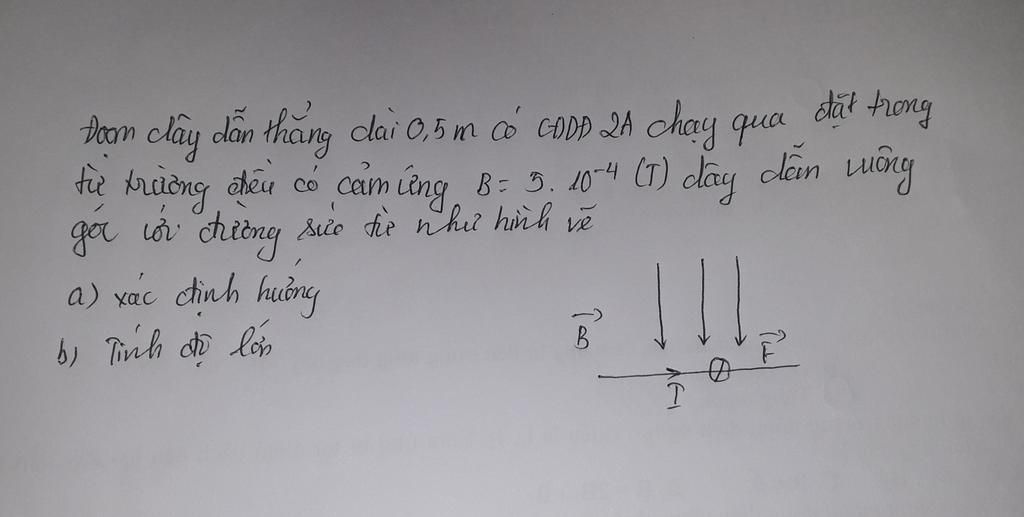 Đoạn dây dẫn thẳng dài 0,5 m có CĐDĐ 2A chạy qua đặt trong
từ trường đều có cảm ứng B = 5. 10⁻⁴ (T) dây dẫn vuông
góc với đường sức từ như hình vẽ
a) xác định hướng
b) Tính độ lớn
B
F
I